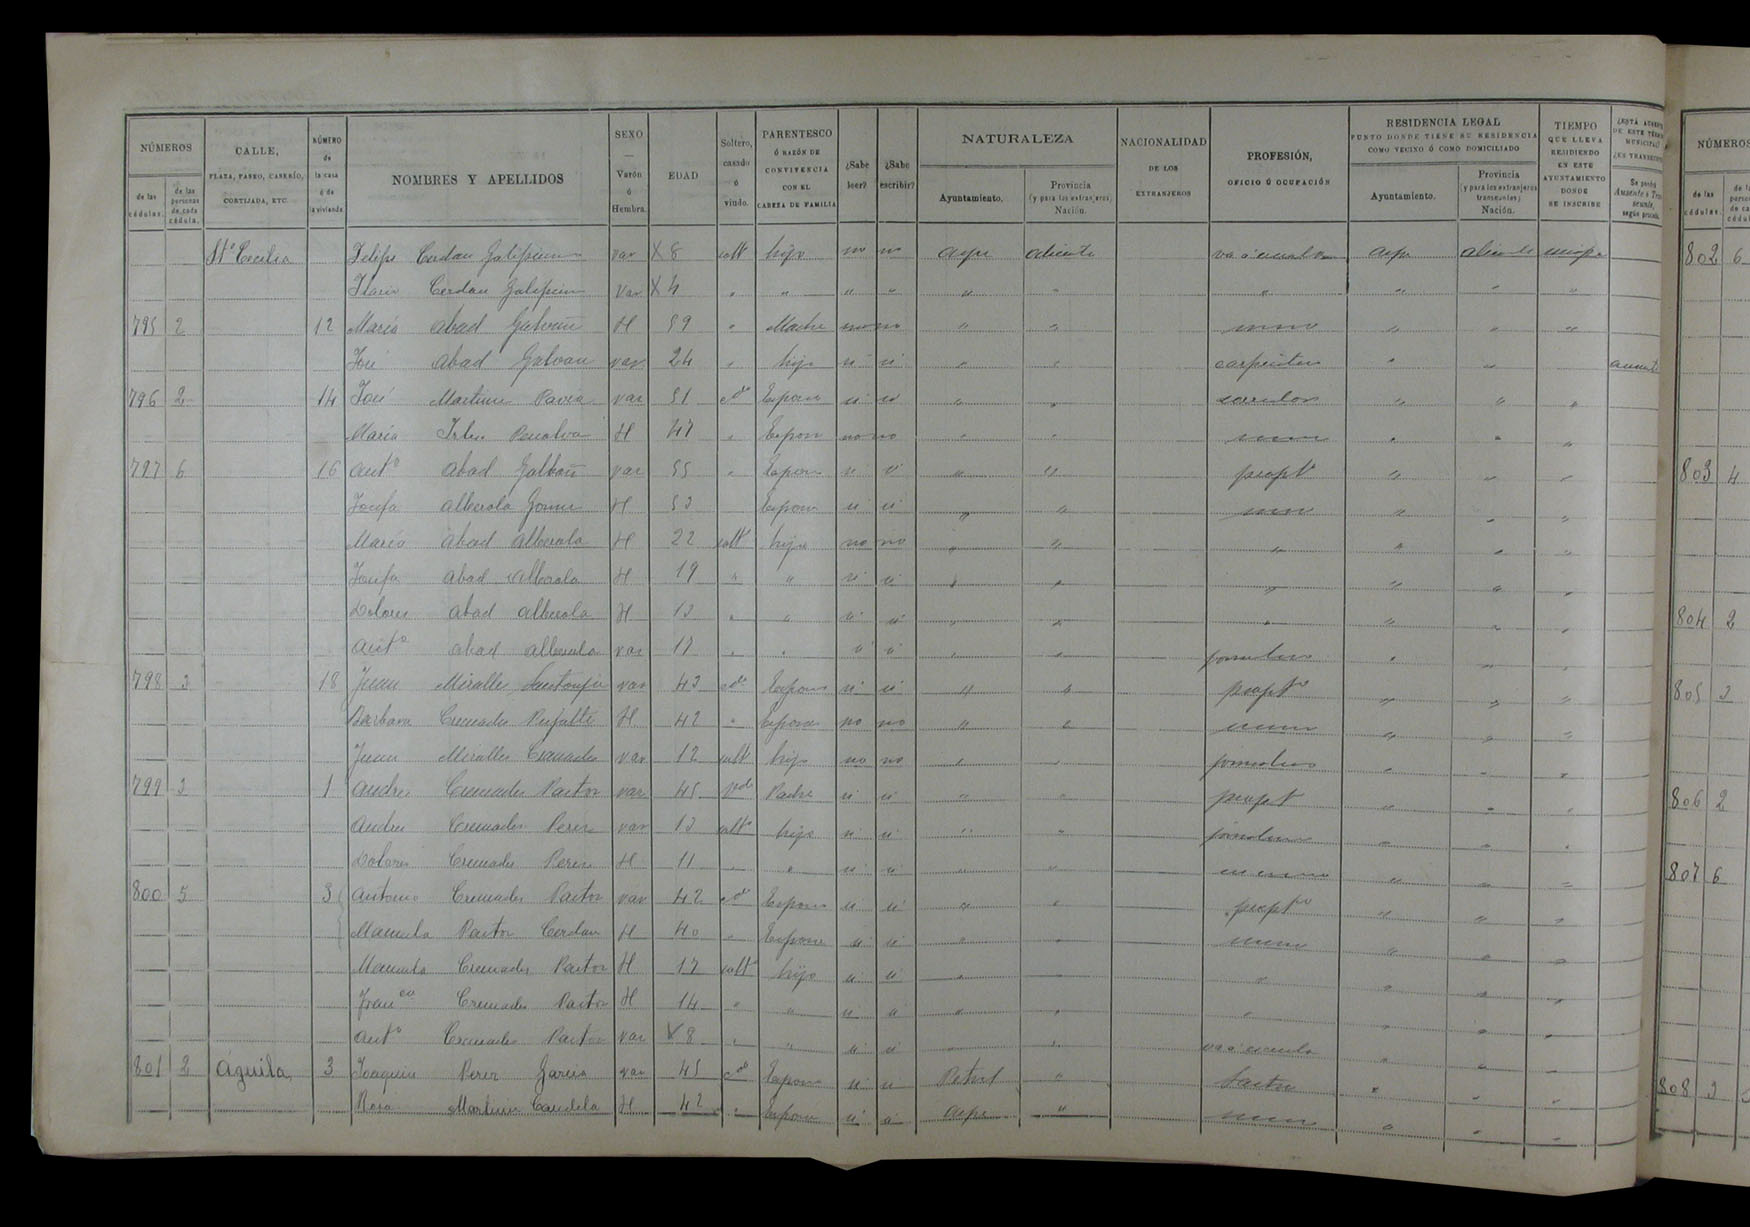 NÚMEROS
de las cédulas.
de las personas de cada cédula.
CALLE,
PLAZA, PASEO, CASERÍO,
CORTIJADA, ETC.
NÚMERO de la casa ó de la vivienda
NOMBRES Y APELLIDOS
SEXO — Varón ó Hembra.
EDAD
Soltero, casado ó viudo.
PARENTESCO Ó RAZÓN DE CONVIVENCIA CON EL CABEZA DE FAMILIA
¿Sabe leer?
¿Sabe escribir?
NATURALEZA
Ayuntamiento.
Provincia (y para los extranjeros) Nación.
NACIONALIDAD DE LOS EXTRANJEROS
PROFESIÓN,
OFICIO Ú OCUPACIÓN
RESIDENCIA LEGAL
PUNTO DONDE TIENE SU RESIDENCIA
COMO VECINO Ó COMO DOMICILIADO
Ayuntamiento.
Provincia (y para los extranjeros transeuntes) Nación.
TIEMPO QUE LLEVA RESIDIENDO EN ESTE AYUNTAMIENTO DONDE SE INSCRIBE
NÚMEROS
Sta Cecilia Felipe Cerdan var X 8 solt hijo no no Aspe Alicante va á escuela Aspe Alicante siempre
Cerdan var X 4 " " " " " " " " " "
795 2 12 Maria Abad Galvañ H 59 " Madre no no " " " " "
José Abad Galvan var 24 " hijo si si " " carpintero " "
796 2 14 José Martinez Pavia var 51 cdo Esposo si si " " " " "
Maria H 47 " Esposa no no " " " " "
797 6 16 Anto Abad Galbañ var 55 " Esposo si si " " propto " " "
Josefa Alberola Gomez H 53 Esposa si si " " " " "
Maria Abad Alberola H 22 solt hija no no " " " " " "
Josefa Abad Alberola H 19 " " si si " " " " " "
Dolores Abad Alberola H 13 " " si si " " " " " "
Anto Abad Alberola var 17 " " si si " " jornalero " " "
798 3 18 Juan Miralles var 43 cdo Esposo si si " " propto " " "
Barbara Cremades H 42 " Esposa no no " " " " "
Juan Miralles Cremades var 12 solt hijo no no " " jornalero " " "
799 3 1 Andres Cremades Pastor var 45 Vdo Padre si si " " propt " " "
Andres Cremades Perez var 13 solto hijo si si " " jornalero " " "
Dolores Cremades Perez H 11 " " si si " " " " "
800 5 3 Antonio Cremades Pastor var 42 cdo Esposo si si " " propto " " "
Manuela Pastor Cerdan H 40 " Esposa si si " " " " "
Manuela Cremades Pastor H 17 solto hija si si " " " " " "
Franca Cremades Pastor H 14 " " si si " " " " " "
Anto Cremades Pastor var X 8 " " si si " " va á escuela " " "
801 2 Águila 3 Joaquin Perez Garcia var 45 cdo Esposo si si Petrel " Sastre " " "
Rosa Martinez Candela H 42 " Esposa si si Aspe " " " "
802 6
803 4
804 2
805 3
806 2
807 6
808 3